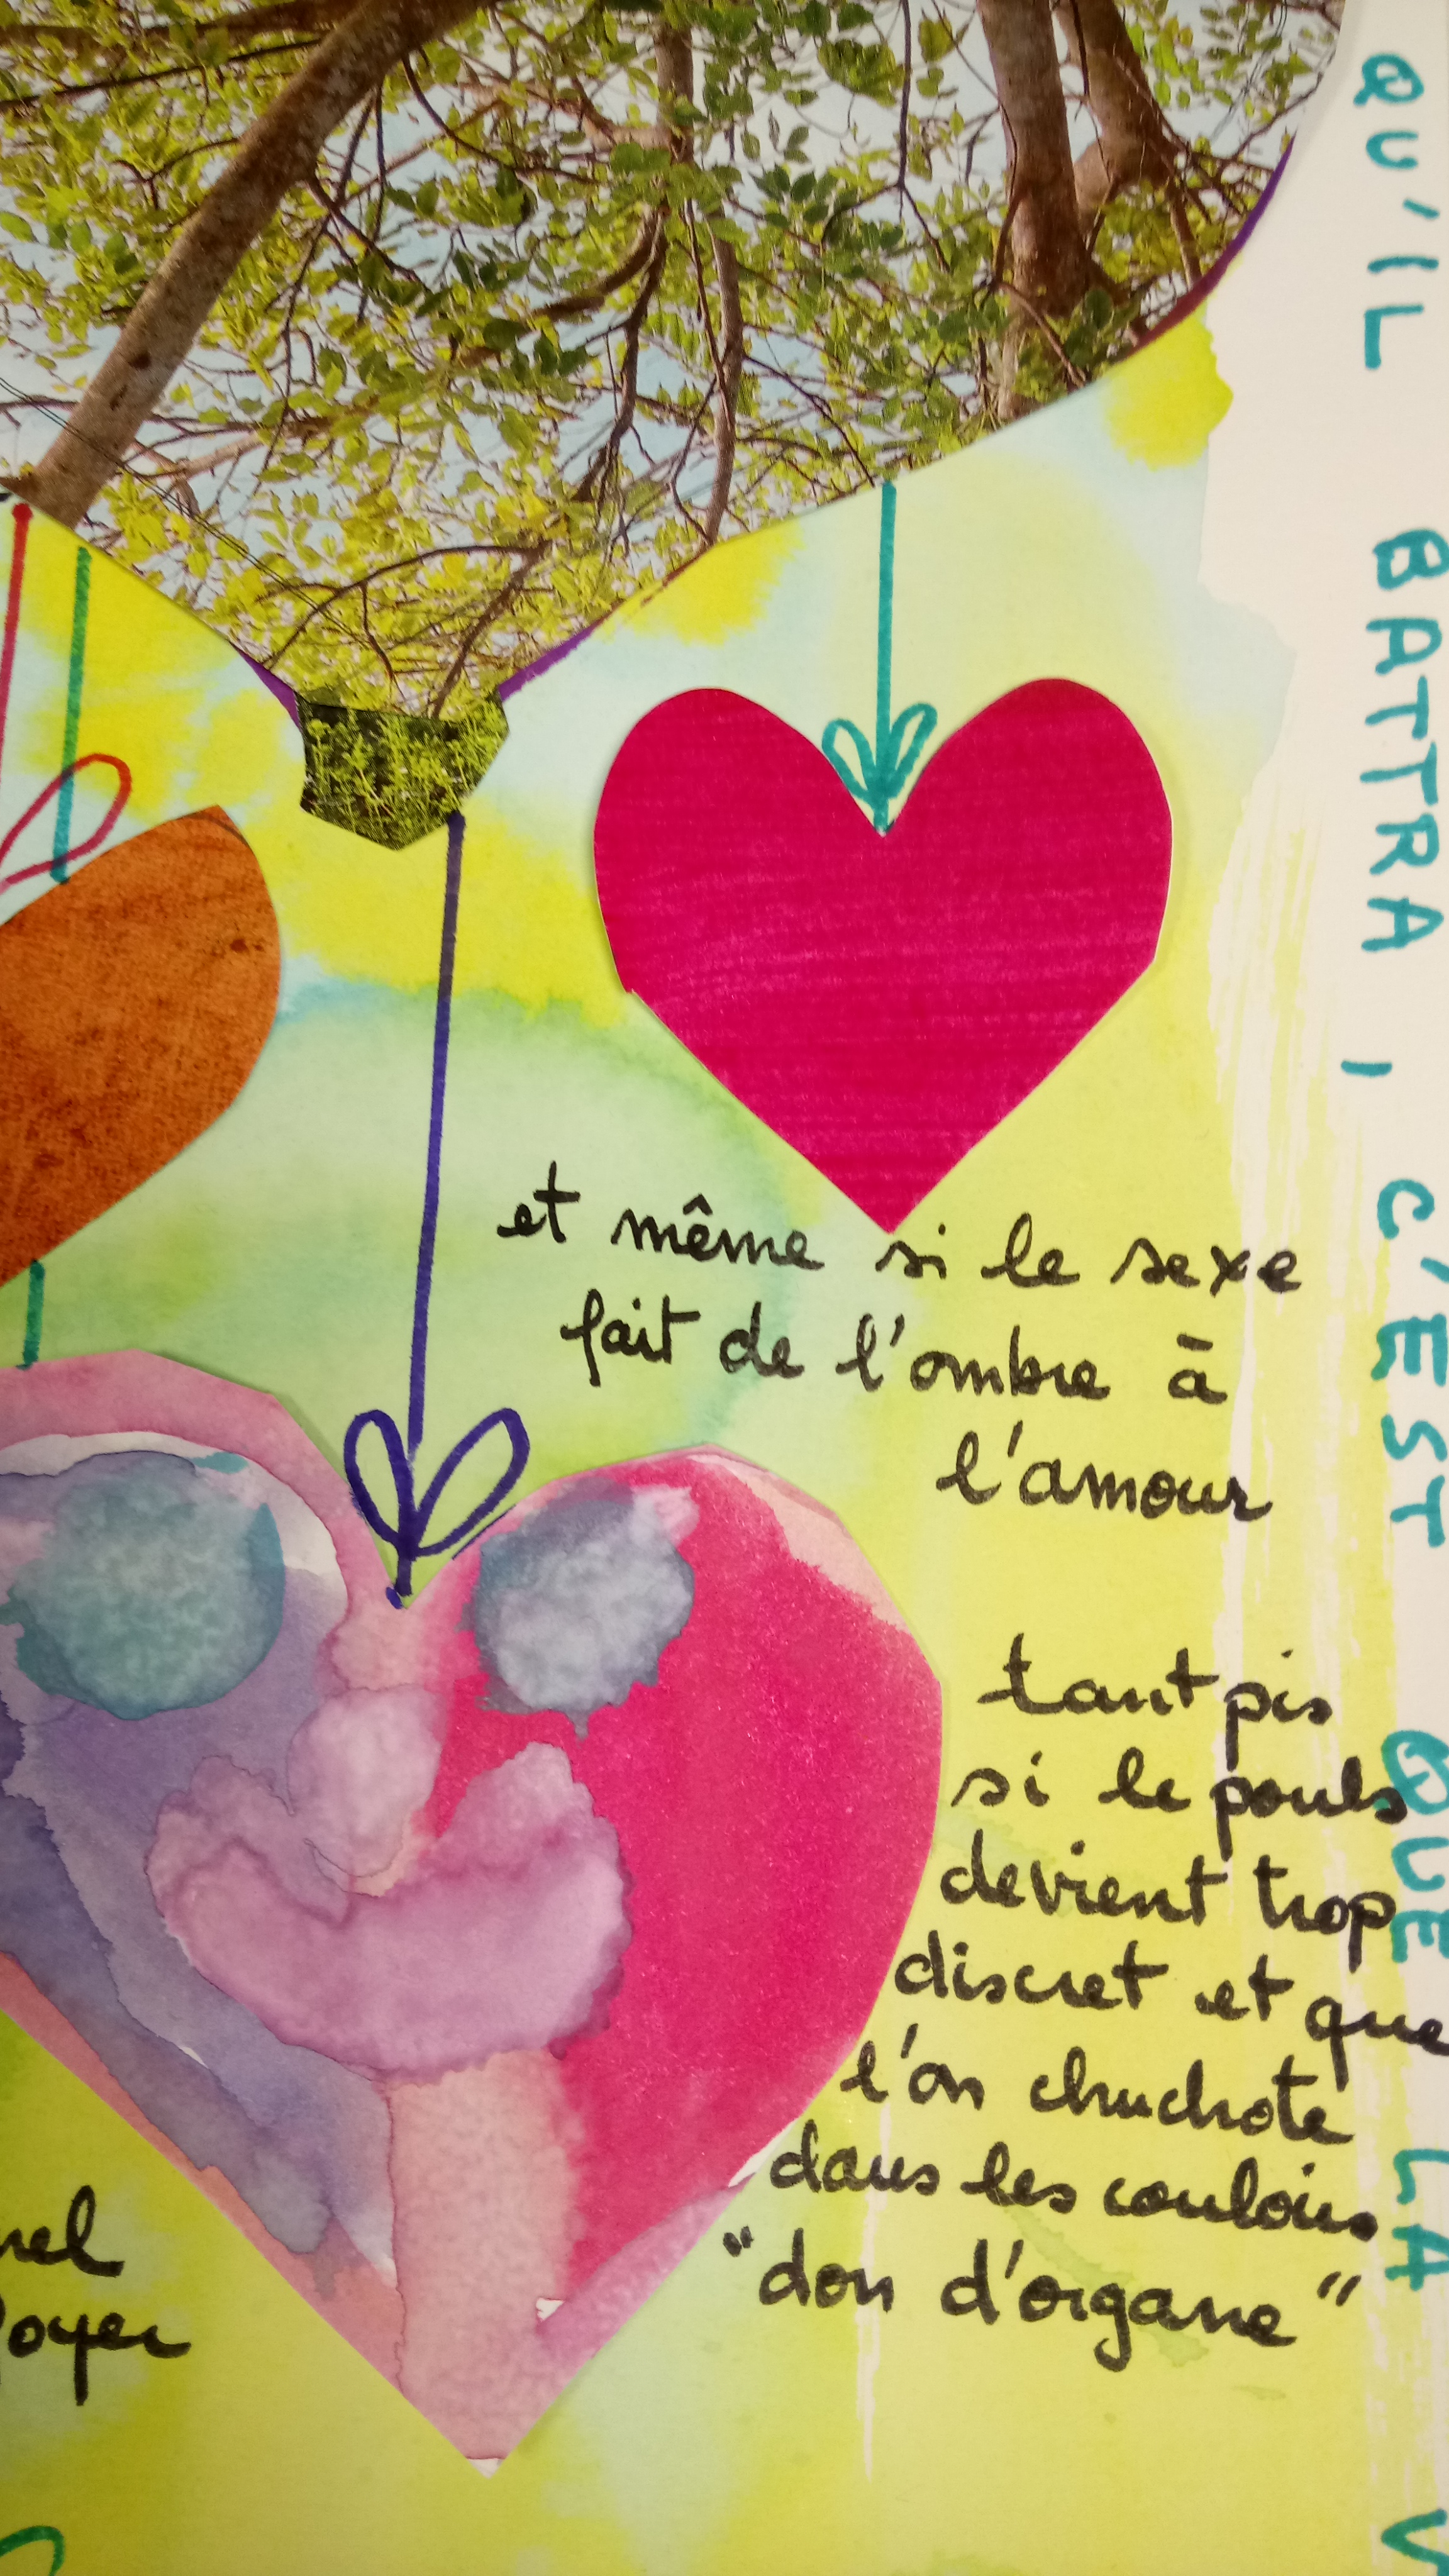 et même si le sexe
fait de l'ombre à
l'amour
tant pis
si le pouls
devient trop
discret et que
l'on chuchote
dans les couloirs
"don d'organe"
QU'IL BATTRA, C'EST QUE LA V